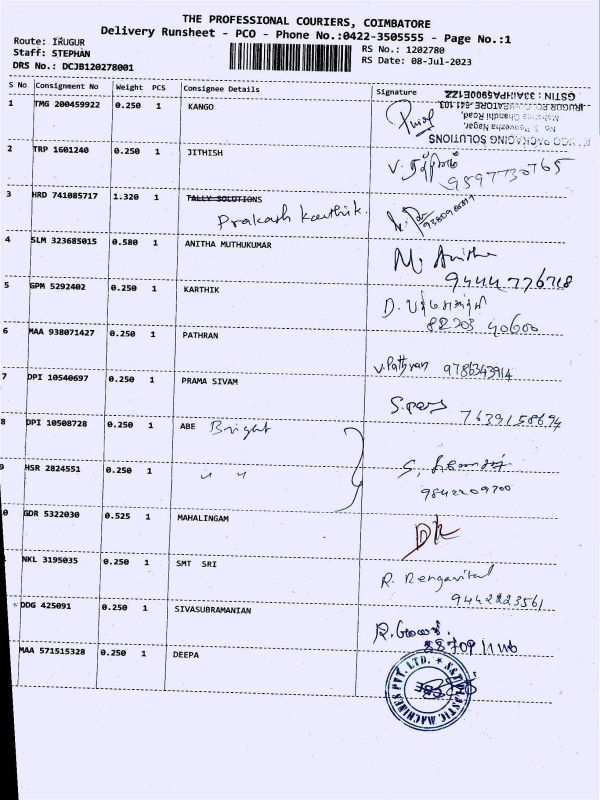 THE PROFESSIONAL COURIERS, COIMBATORE
Delivery Runsheet - PCO - Phone No.:0422-3505555 - Page No.:1
Route: IRUGUR
Staff: STEPHAN
DRS No.: DCJB120278001
RS No.: 1202780
RS Date: 08-Jul-2023
S No Consignment No Weight PCS Consignee Details Signature
GSTIN : 33
IRUGUR
Mahatma Gandhi Road,
Nagar,
PACKAGING SOLUTIONS
1 TMG 200459922 0.250 1 KANGO
2 TRP 1601240 0.250 1 JITHISH V.
9597730765
3 HRD 741085717 1.320 1 TALLY SOLUTIONS
Prakash Karthik.
4 SLM 323685015 0.580 1 ANITHA MUTHUKUMAR M. Anitha
9444 776718
5 GPM 5292402 0.250 1 KARTHIK D.
6 MAA 938071427 0.250 1 PATHRAN V.Pathran 9786343914
7 DPI 10540697 0.250 1 PRAMA SIVAM
7639158694
8 DPI 10508728 0.250 1 ABE Bright
9 HSR 2824551 0.250 1 " " S.
9842209700
0 GDR 5322030 0.525 1 MAHALINGAM
NKL 3195035 0.250 1 SMT SRI R. Rengavital
9442223561
DDG 425091 0.250 1 SIVASUBRAMANIAN R.
MAA 571515328 0.250 1 DEEPA
PLASTIC MACHINES PVT. LTD.